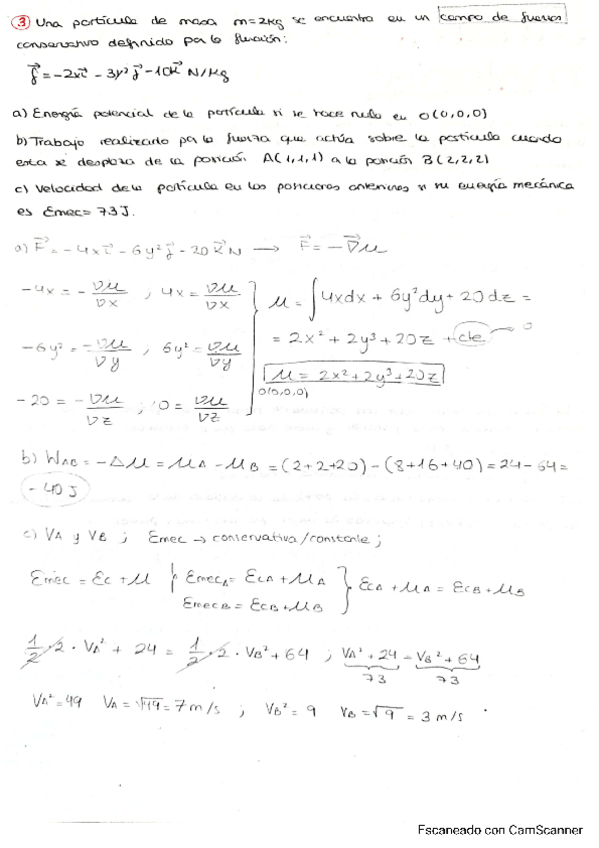 ③ Una partícula de masa m=2kg se encuentra en un campo de fuerzas
conservativo definido por la función:
f⃗ = -2xi⃗ - 3y²j⃗ - 10k⃗ N/kg
a) Energía potencial de la partícula si se hace nula en O(0,0,0)
b) Trabajo realizado por la fuerza que actúa sobre la partícula cuando
esta se desplaza de la posición A(1,1,1) a la posición B(2,2,2)
c) Velocidad de la partícula en las posiciones anteriores si su energía mecánica
es Emec= 73J.
a) F⃗ = -4xi⃗ - 6y²j⃗ - 20k⃗ N → F⃗ = -∇⃗U
-4x = -∇U/∇x ; 4x = ∇U/∇x
-6y² = -∇U/∇y ; 6y² = ∇U/∇y
-20 = -∇U/∇z ; 0 = ∇U/∇z
U = ∫4xdx + 6y²dy + 20dz =
= 2x² + 2y³ + 20z + cte → 0
U = 2x² + 2y³ + 20z
O(0,0,0)
b) WAB = -ΔU = UA - UB = (2+2+20) - (8+16+40) = 24 - 64 =
-40J
c) VA y VB ; Emec → conservativa/constante ;
Emec = Ec + U } EmecA = EcA + UA } EcA + UA = EcB + UB
EmecB = EcB + UB
1/2 · 2 · VA² + 24 = 1/2 · 2 · VB² + 64 ; VA² + 24 = VB² + 64
73 73
VA² = 49 VA = √49 = 7 m/s ; VB² = 9 VB = √9 = 3 m/s
Escaneado con CamScanner